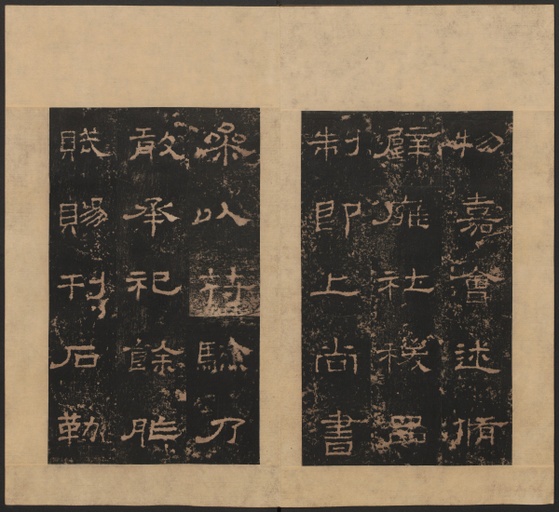 物嘉會述脩
辟雍社稷品
制即上尚書
參以符驗乃
敢承祀餘胙
賦賜刊石勒